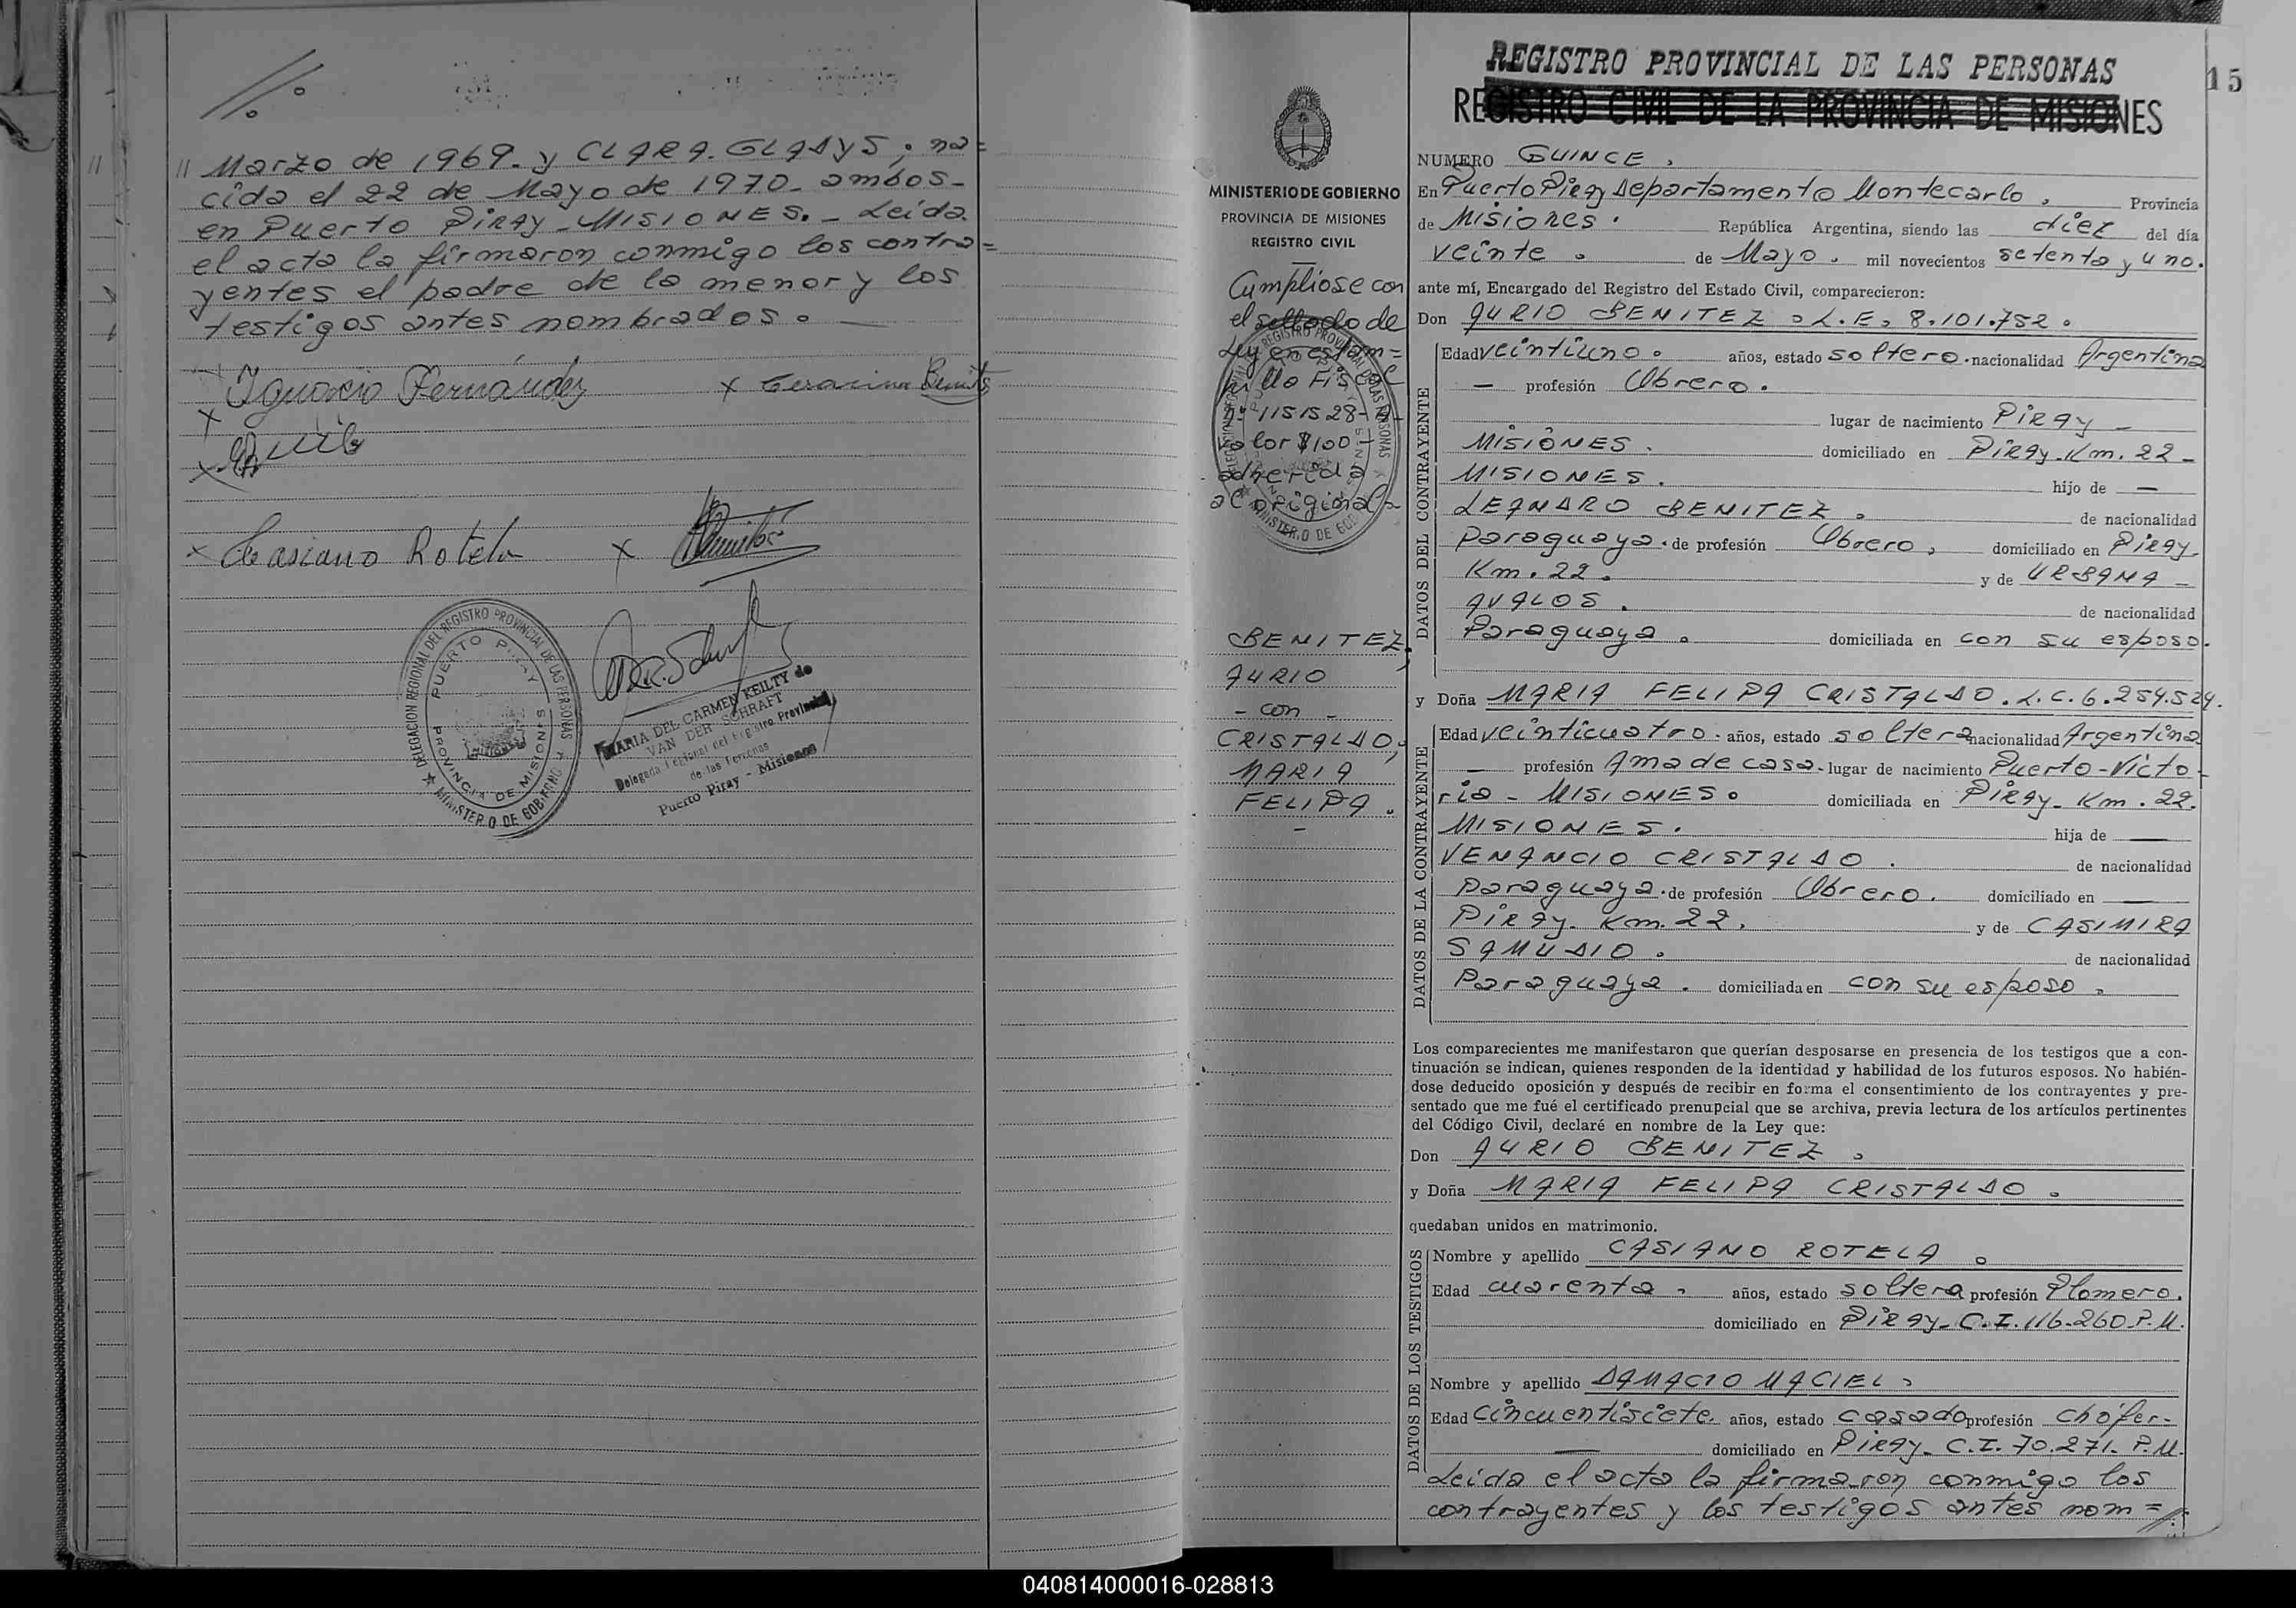 // Marzo de 1969. y CLARA. GLADYS; na=
cida el 22 de Mayo de 1970. ambos-
en Puerto PIRAY-MISIONES.- Leida
el acta la firmaron conmigo los contra=
yentes el padre de la menor y los
testigos antes nombrados.
x Ignacio Fernández x Benitez
x
x Casiano Rotela x
DELEGACION REGIONAL DEL REGISTRO PROVINCIAL DE LAS PERSONAS
PUERTO PIRAY
PROVINCIA DE MISIONES
MINISTERIO DE GOBIERNO
MARIA DEL CARMEN KEILTY de
VAN DER SCHRAFT
Delegada Regional del Registro Provincial
de las Personas
Puerto Piray - Misiones
MINISTERIO DE GOBIERNO
PROVINCIA DE MISIONES
REGISTRO CIVIL
Cumpliose con
el sellado de
Ley en estam=
pilla Fiscal
adherida
al original-
BENITEZ,
AURIO
- con -
CRISTALDO,
MARIA
FELIPA.
-
15
REGISTRO PROVINCIAL DE LAS PERSONAS
REGISTRO CIVIL DE LA PROVINCIA DE MISIONES
NUMERO QUINCE.
En Puerto Piray Departamento Montecarlo, Provincia
de Misiones. República Argentina, siendo las diez del día
veinte. de Mayo. mil novecientos setenta y uno.
ante mí, Encargado del Registro del Estado Civil, comparecieron:
Don AURIO BENITEZ. L.E. 8.101.752.
DATOS DEL CONTRAYENTE
Edad veintiuno. años, estado soltero. nacionalidad Argentina
— profesión Obrero.
lugar de nacimiento PIRAY -
MISIONES. domiciliado en PIRAY-Km. 22-
MISIONES. hijo de —
LEANDRO BENITEZ. de nacionalidad
Paraguaya. de profesión Obrero, domiciliado en PIRAY-
Km. 22. y de URBANA -
AVALOS. de nacionalidad
Paraguaya. domiciliada en con su esposo.
y Doña MARIA FELIPA CRISTALDO. L.C. 6.254.524.
DATOS DE LA CONTRAYENTE
Edad veinticuatro. años, estado soltera nacionalidad Argentina
— profesión Ama de casa. lugar de nacimiento Puerto-Victo-
ria - MISIONES. domiciliada en PIRAY- Km. 22.
MISIONES. hija de —
VENANCIO CRISTALDO. de nacionalidad
Paraguaya. de profesión Obrero. domiciliado en —
PIRAY- Km. 22. y de CASIMIRA
SAMUDIO. de nacionalidad
Paraguaya. domiciliada en con su esposo.
Los comparecientes me manifestaron que querían desposarse en presencia de los testigos que a con-
tinuación se indican, quienes responden de la identidad y habilidad de los futuros esposos. No habién-
dose deducido oposición y después de recibir en forma el consentimiento de los contrayentes y pre-
sentado que me fué el certificado prenupcial que se archiva, previa lectura de los artículos pertinentes
del Código Civil, declaré en nombre de la Ley que:
Don AURIO BENITEZ.
y Doña MARIA FELIPA CRISTALDO.
quedaban unidos en matrimonio.
DATOS DE LOS TESTIGOS
Nombre y apellido CASIANO ROTELA.
Edad cuarenta. años, estado soltera profesión Plomero.
domiciliado en PIRAY- C.I. 116.260 P.M.
Nombre y apellido DAMACIO MACIEL.
Edad Cincuentisiete. años, estado casado profesión chófer-
domiciliado en PIRAY- C.I. 70.271. P.M.
Leida el acta la firmaron conmigo los
contrayentes y los testigos antes nom=//
040814000016-028813